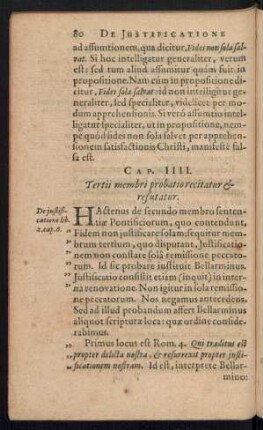 80 DE JUSTIFICATIONE
ad assumtionem, qua dicitur, Fides non sola sal-
vat. Si hoc intelligatur generaliter, verum
est: sed tum aliud assumitur quàm fuit in
propositione. Nam cum in propositione di-
citur, Fides sola salvat: id non intelligitur ge-
neraliter, sed specialiter, videlicet per mo-
dum apprehensionis. Si verò assumtio intel-
ligatur specialiter, ut in propositione, nem-
pe quòd fides non sola salvet per apprehen-
sionem satisfactionis Christi, manifestè fal-
sa est.
CAP. IIII.
Tertii membri probatio recitatur &
refutatur.
De justifi-
catione lib.
1. cap. 6.
HActenus de secundo membro senten-
tiæ Pontificiorum, quo contendunt,
Fidem non justificare solam: sequitur mem-
brum tertium, quo disputant, Justificatio-
nem non constare solâ remissione pecca-
torum. Id sic probare instituit Bellarminus.
Justificatio consistit etiam (inquit) in inter-
na renovatione. Non igitur in sola remissio-
ne peccatorum. Nos negamus antecedens.
Sed ad illud probandum affert Bellarminus
aliquot scripturæ loca: quæ ordine consi-
derabimus.
Primus locus est Rom. 4. Qui traditus est
propter delicta nostra, & resurrexit propter justi-
ficationem nostram. Id est, interprete Bellar-
mino: